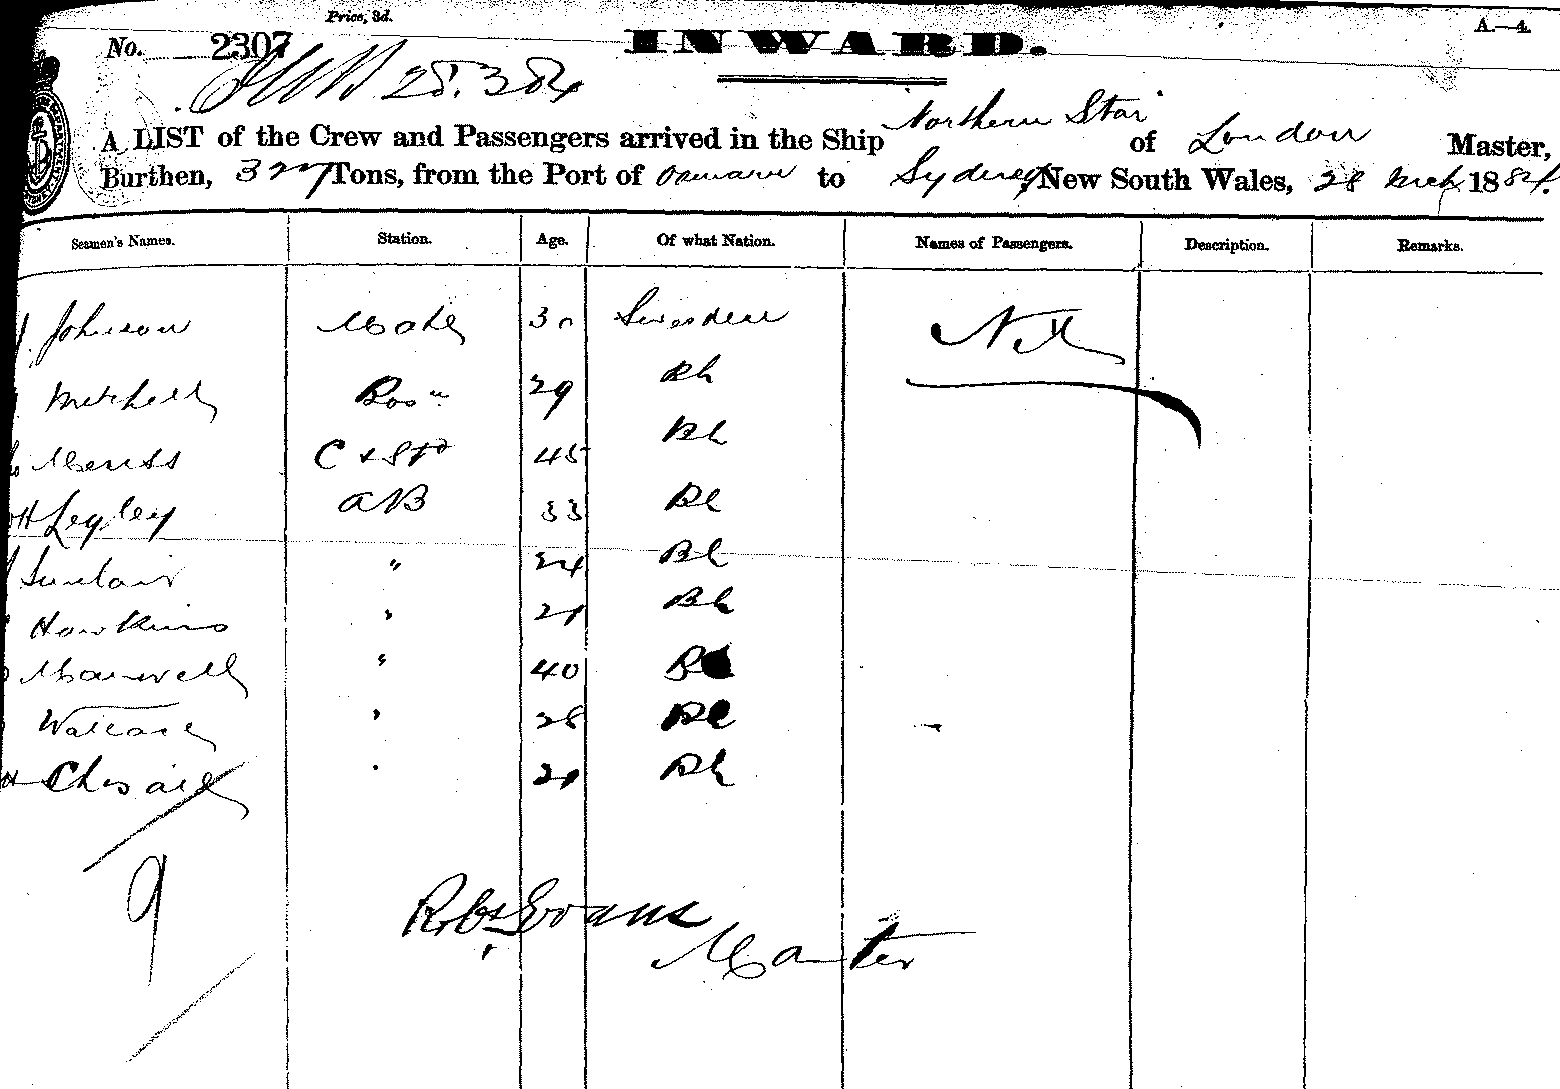 Price, 3d.
A.—4.
No. 2307
INWARD.
28.3.84
A LIST of the Crew and Passengers arrived in the Ship Northern Star of London Master,
Burthen, 327 Tons, from the Port of Oamaru to Sydney, New South Wales, 28 Mch 1884.
Seamen's Names. Station. Age. Of what Nation. Names of Passengers. Description. Remarks.
Johnson Mate 30 Sweden Nil
Mitchell Bosn 29 Bh
C & Std 45 Bh
Legley AB 33 Bh
Sinclair " 24 Bh
Hawkins " 21 Bh
Maxwell " 40
Wallace " 28 Bh
" 21 Bh
9
Robt Evans
Master